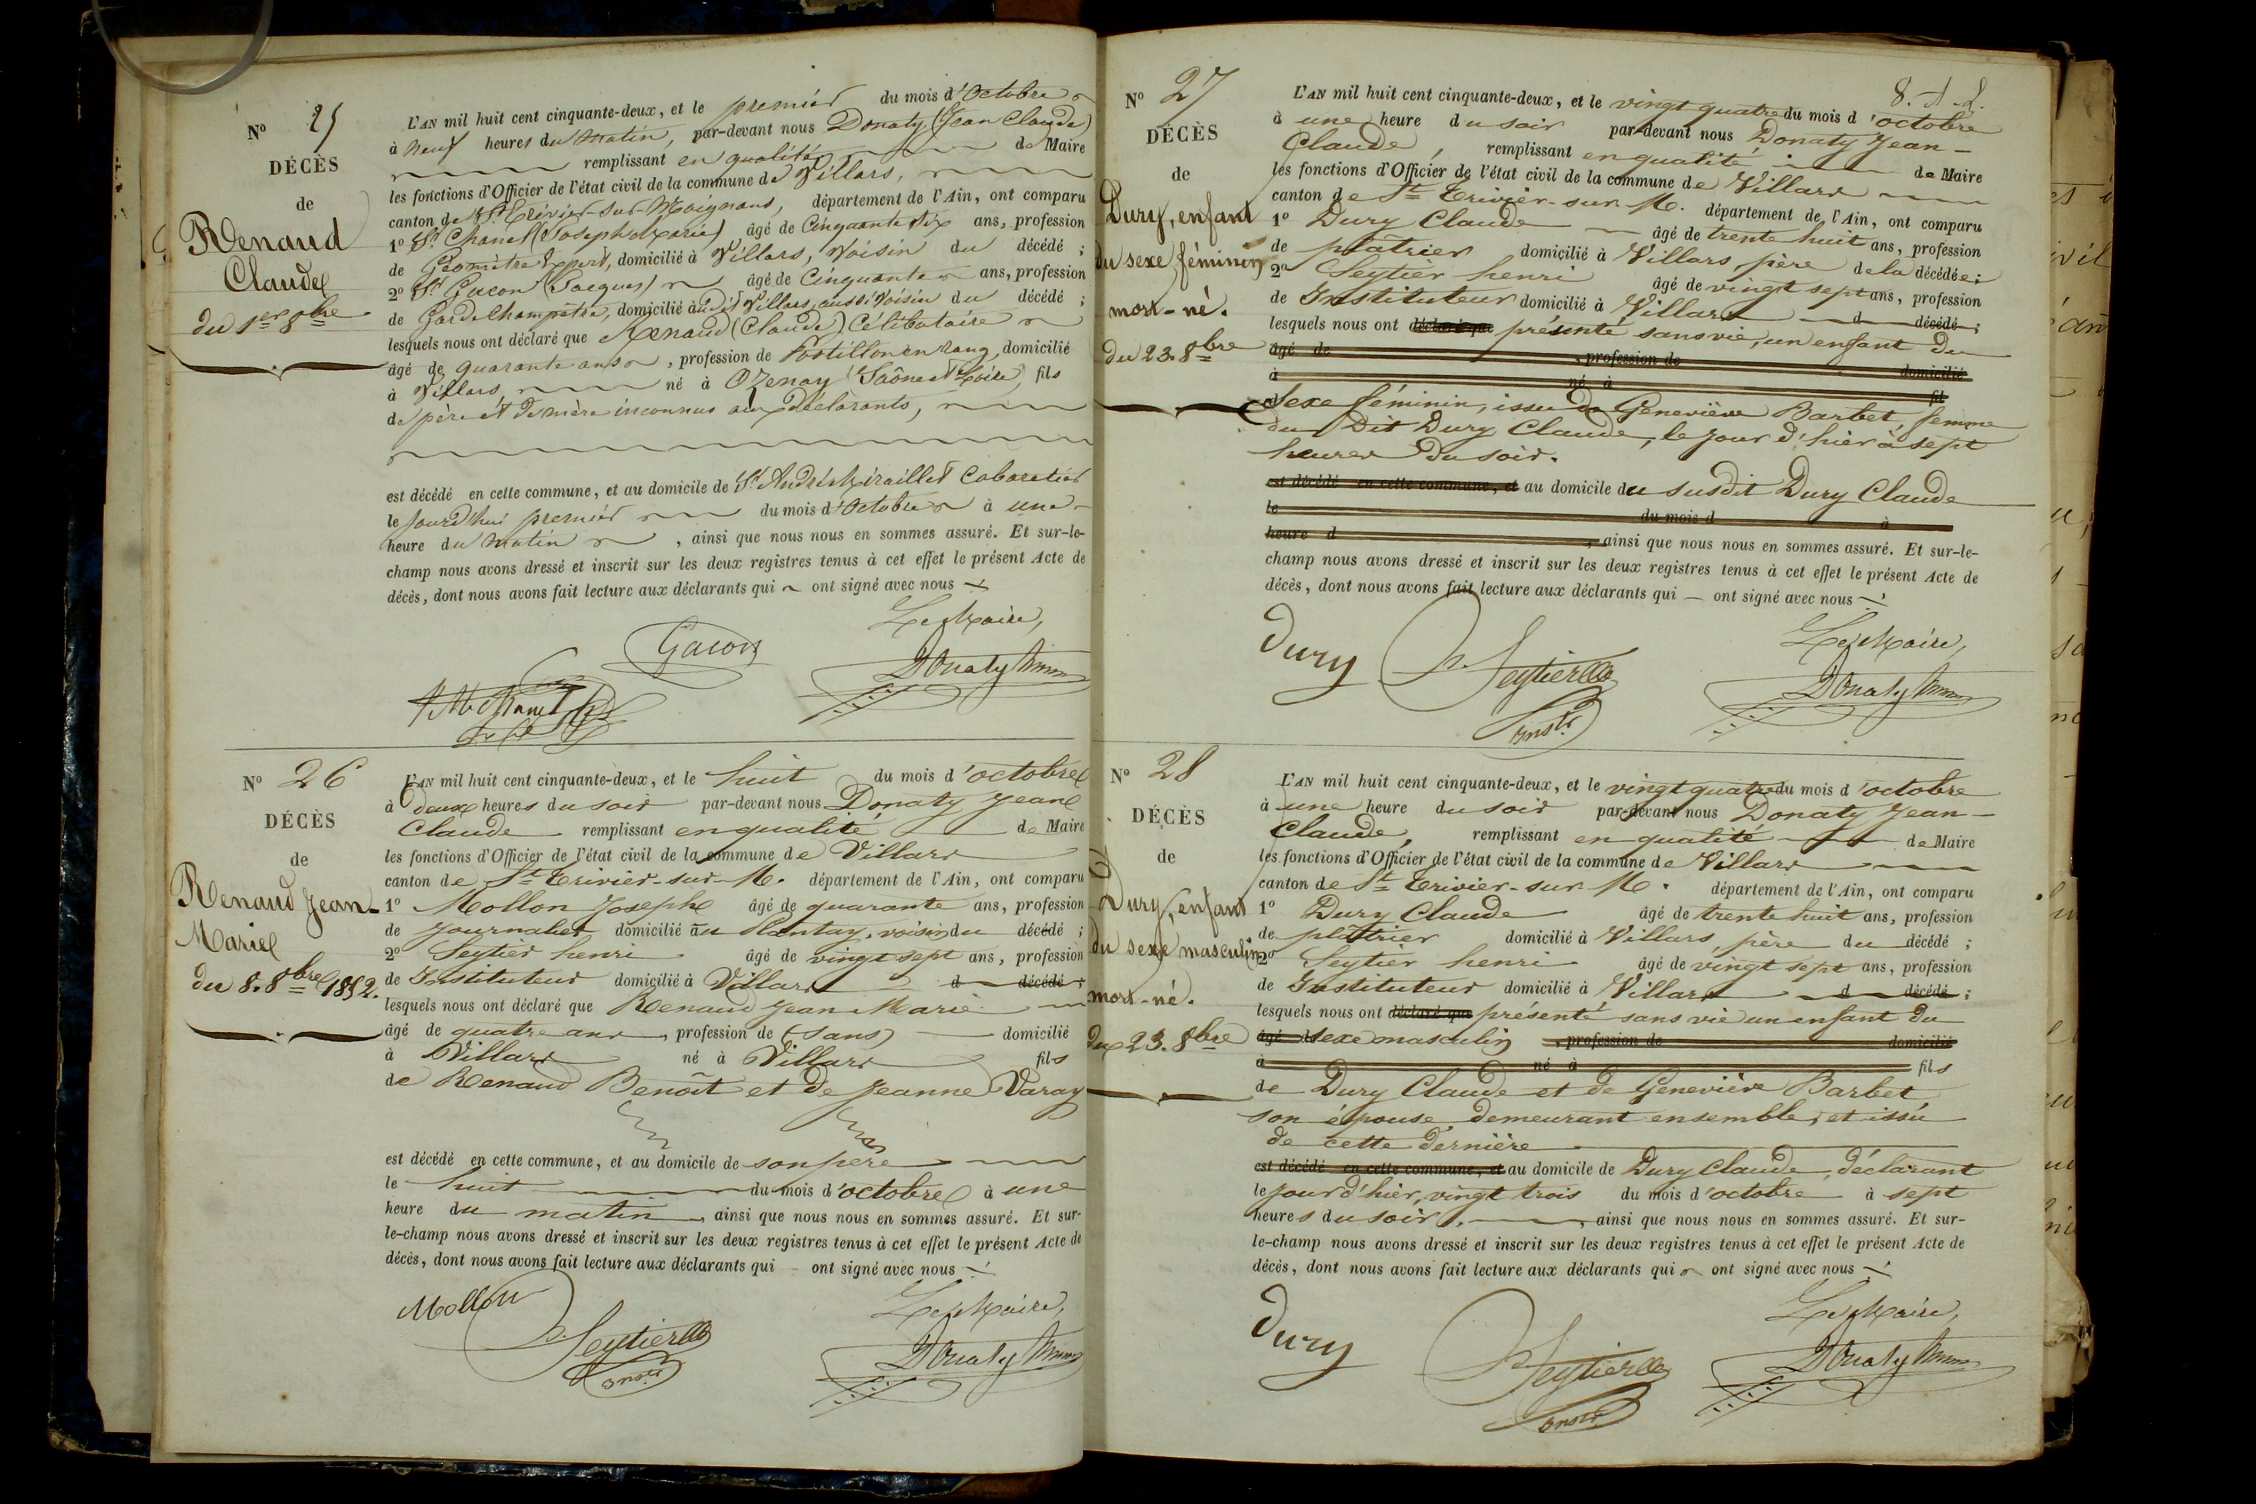 N° 25
DÉCÈS
de
Renaud
Claude
du 1er 8bre
L'AN mil huit cent cinquante-deux, et le premier du mois d'Octobre
à neuf heures du matin, par-devant nous Donaty (Jean Claude)
remplissant en qualité de Maire
les fonctions d'Officier de l'état civil de la commune de Villars,
canton de St Trivier-sur-Moignans, département de l'Ain, ont comparu
1° Sr Chanel (Joseph Marie) âgé de Cinquante six ans, profession
de Géomètre Expert, domicilié à Villars, Voisin du décédé ;
2° Sr Gacon (Jacques) âgé de Cinquante ans, profession
de Garde Champêtre, domicilié audit Villars, aussi Voisin du décédé ;
lesquels nous ont déclaré que Renaud (Claude) Célibataire
âgé de quarante ans, profession de Postillon en rang, domicilié
à Villars, né à Ozenay (Saône et Loire) fils
de père et de mère inconnus aux déclarants,
est décédé en cette commune, et au domicile de Sr André Miraillet Cabaretier
le jourd'hui premier du mois d'Octobre à une
heure du matin, ainsi que nous nous en sommes assuré. Et sur-le-
champ nous avons dressé et inscrit sur les deux registres tenus à cet effet le présent Acte de
décès, dont nous avons fait lecture aux déclarants qui ont signé avec nous
Le Maire,
Gacon
Donaty
N° 26
DÉCÈS
de
Renaud Jean-
Marie
du 8. 8bre 1852.
L'AN mil huit cent cinquante-deux, et le huit du mois d'octobre
à deux heures du soir par-devant nous Donaty Jean
Claude remplissant en qualité de Maire
les fonctions d'Officier de l'état civil de la commune de Villars
canton de St Trivier-sur-M. département de l'Ain, ont comparu
1° Mollon Joseph âgé de quarante ans, profession
de journalier domicilié au Plantay, voisin du décédé ;
2° Seytier henri âgé de vingt sept ans, profession
de Instituteur domicilié à Villars d décédé ;
lesquels nous ont déclaré que Renaud Jean Marie
âgé de quatre ans, profession de (sans) domicilié
à Villars né à Villars fils
de Renaud Benoît et de Jeanne Varay
est décédé en cette commune, et au domicile de son père
le huit du mois d'octobre à une
heure du matin, ainsi que nous nous en sommes assuré. Et sur-
le-champ nous avons dressé et inscrit sur les deux registres tenus à cet effet le présent Acte de
décès, dont nous avons fait lecture aux déclarants qui ont signé avec nous
Mollon
Le Maire,
Seytier
Instr
Donaty
8. A. L.
N° 27
DÉCÈS
de
Dury, enfant
du sexe féminin
mort-né.
du 23. 8bre
L'AN mil huit cent cinquante-deux, et le vingt quatre du mois d'octobre
à une heure du soir par-devant nous Donaty Jean-
Claude, remplissant en qualité de Maire
les fonctions d'Officier de l'état civil de la commune de Villars
canton de St Trivier-sur-M. département de l'Ain, ont comparu
1° Dury Claude âgé de trente huit ans, profession
de plâtrier domicilié à Villars, père de la décédée ;
2° Seytier henri âgé de vingt sept ans, profession
de Instituteur domicilié à Villars d décédé ;
lesquels nous ont déclaré que présenté sans vie, un enfant du
âgé de , profession de domicilié
à né à fil
sexe féminin, issu de Geneviève Barbet, femme
du Dit Dury Claude, le jour d'hier à sept
heures du soir.
est décédé en cette commune, et au domicile du susdit Dury Claude
le du mois d à
heure d , ainsi que nous nous en sommes assuré. Et sur-le-
champ nous avons dressé et inscrit sur les deux registres tenus à cet effet le présent Acte de
décès, dont nous avons fait lecture aux déclarants qui ont signé avec nous
Dury
Le Maire,
Seytier
Instr
Donaty
N° 28
DÉCÈS
de
Dury, enfant
du sexe masculin
mort-né.
du 23. 8bre
L'AN mil huit cent cinquante-deux, et le vingt quatre du mois d'octobre
à une heure du soir par-devant nous Donaty Jean-
Claude, remplissant en qualité de Maire
les fonctions d'Officier de l'état civil de la commune de Villars
canton de St Trivier-sur-M. département de l'Ain, ont comparu
1° Dury Claude âgé de trente huit ans, profession
de plâtrier domicilié à Villars, père du décédé ;
2° Seytier henri âgé de vingt sept ans, profession
de Instituteur domicilié à Villars d décédé ;
lesquels nous ont déclaré que présenté sans vie un enfant du
âgé d sexe masculin , profession de domicilié
à né à fils
de Dury Claude et de Geneviève Barbet
son épouse, demeurant ensemble, et issu
de cette dernière
est décédé en cette commune, et au domicile de Dury Claude, déclarant
le jour d'hier, vingt trois du mois d'octobre à sept
heures du soir, ainsi que nous nous en sommes assuré. Et sur-
le-champ nous avons dressé et inscrit sur les deux registres tenus à cet effet le présent Acte de
décès, dont nous avons fait lecture aux déclarants qui ont signé avec nous
Dury
Le Maire,
Seytier
Instr
Donaty